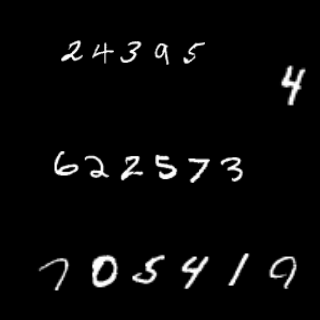 24395
4
622573
705419